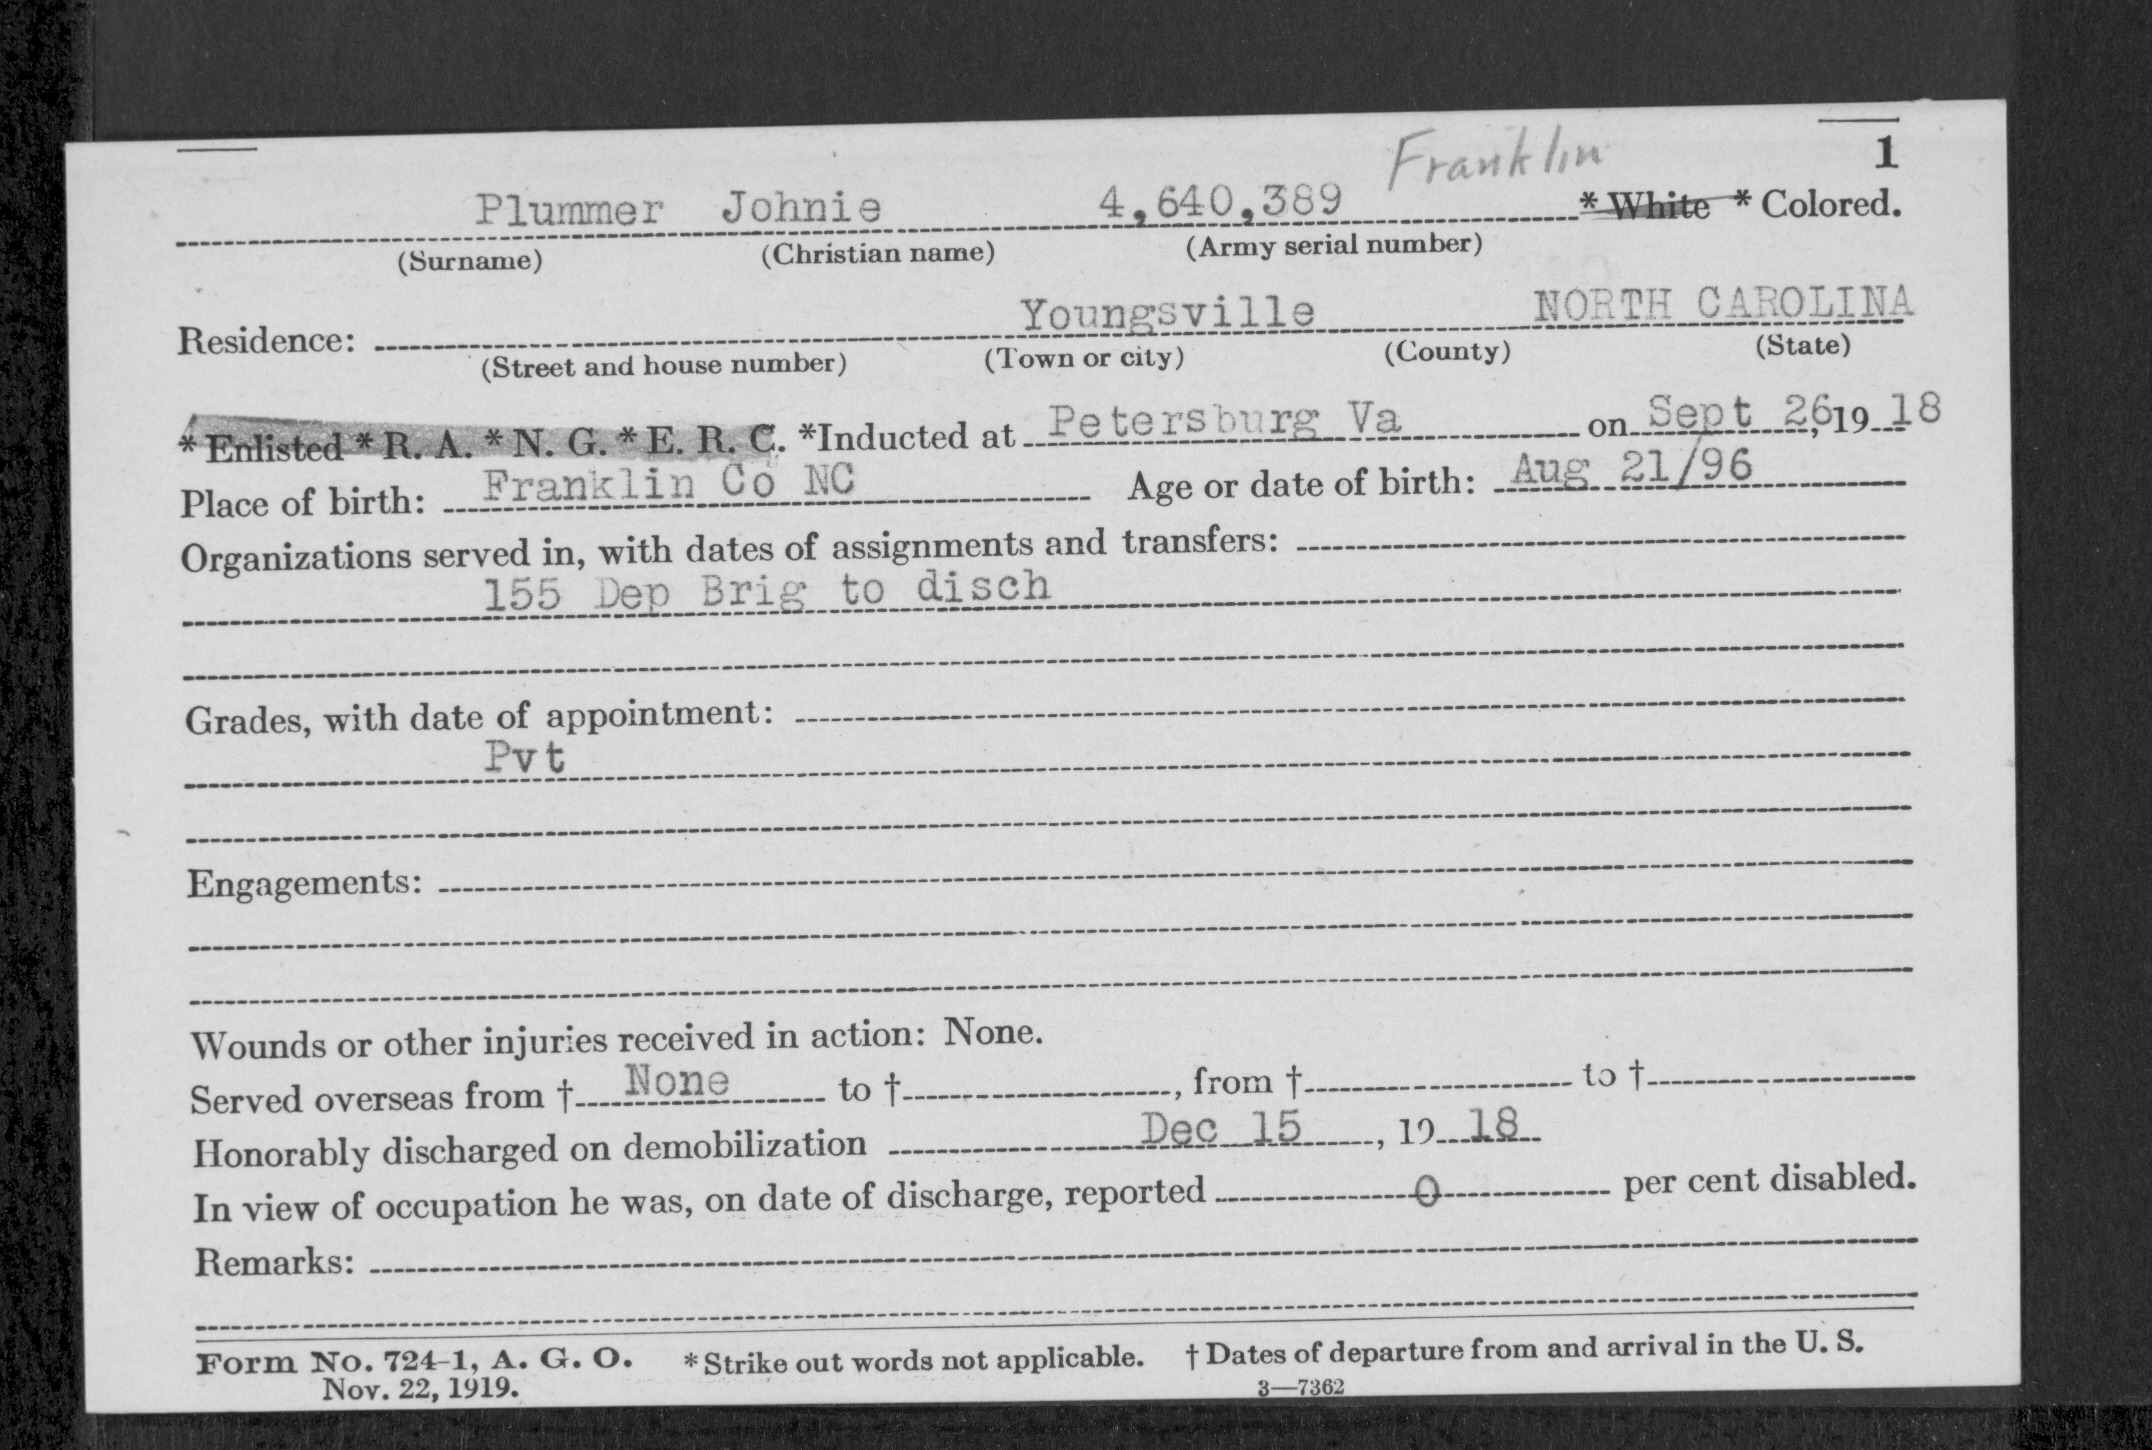 Franklin 1
Plummer Johnie 4,640,389 * White * Colored.
(Surname) (Christian name) (Army serial number)
Residence: Youngsville NORTH CAROLINA
(Street and house number) (Town or city) (County) (State)
* Enlisted * R. A. * N. G. * E. R. C. *Inducted at Petersburg Va on Sept 26, 1918
Place of birth: Franklin Co NC Age or date of birth: Aug 21/96
Organizations served in, with dates of assignments and transfers:
155 Dep Brig to disch
Grades, with date of appointment:
Pvt
Engagements:
Wounds or other injuries received in action: None.
Served overseas from † None to † , from † to †
Honorably discharged on demobilization Dec 15, 1918
In view of occupation he was, on date of discharge, reported 0 per cent disabled.
Remarks:
Form No. 724-1, A. G. O. * Strike out words not applicable. † Dates of departure from and arrival in the U. S.
Nov. 22, 1919. 3—7362